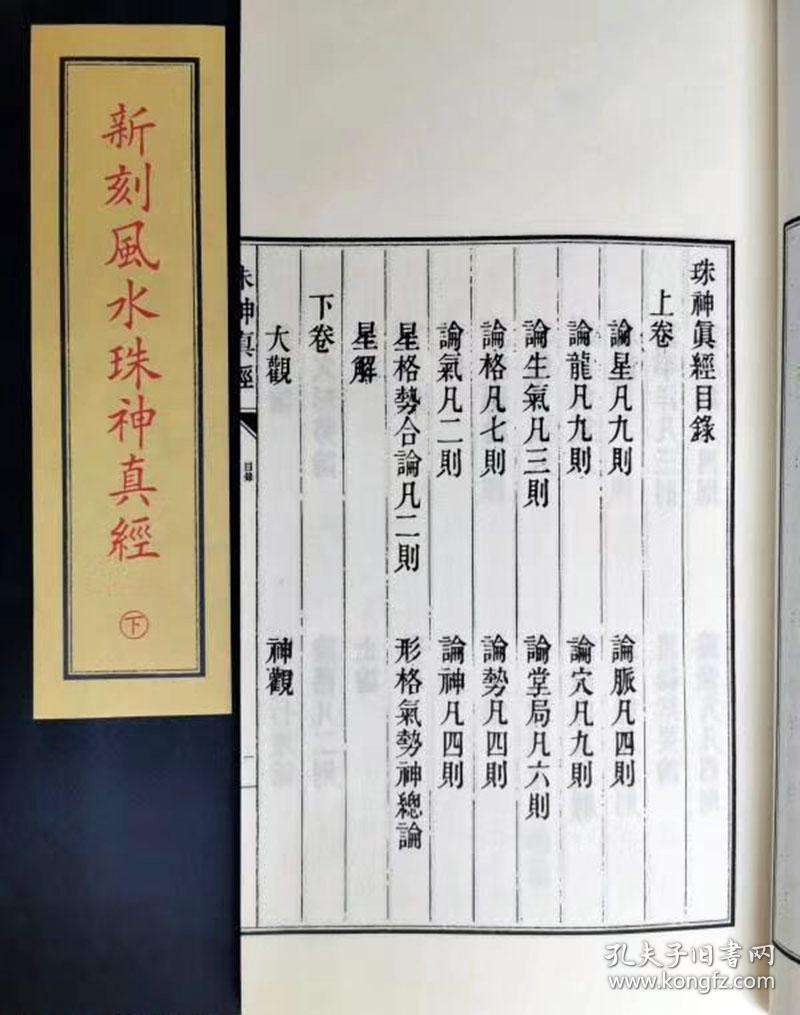 新刻風水珠神真經
下
珠神眞經目錄
上卷
論星凡九則 論脈凡四則
論龍凡九則 論穴凡九則
論生氣凡三則 論堂局凡六則
論格凡七則 論勢凡四則
論氣凡二則 論神凡四則
星格勢合論凡二則 形格氣勢神總論
星解
下卷
大觀 神觀
珠神眞經
目錄
孔夫子旧书网
www.kongfz.com